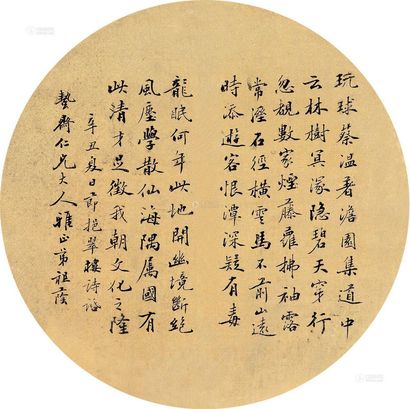 琉球蔡温著澹園集道中
云林樹冥濛隐碧天穿行
忽覩數家煙藤蘿拂袖露
常溼石徑横雲馬不前山遠
時添遊客恨潭深疑有毒
龍眠何年此地開幽境斷絕
風塵學散仙海隅屬國有
此清才足徵我朝文化之隆
辛丑夏日節抱翠樓詩話
藝齋仁兄大人雅正弟祖蔭